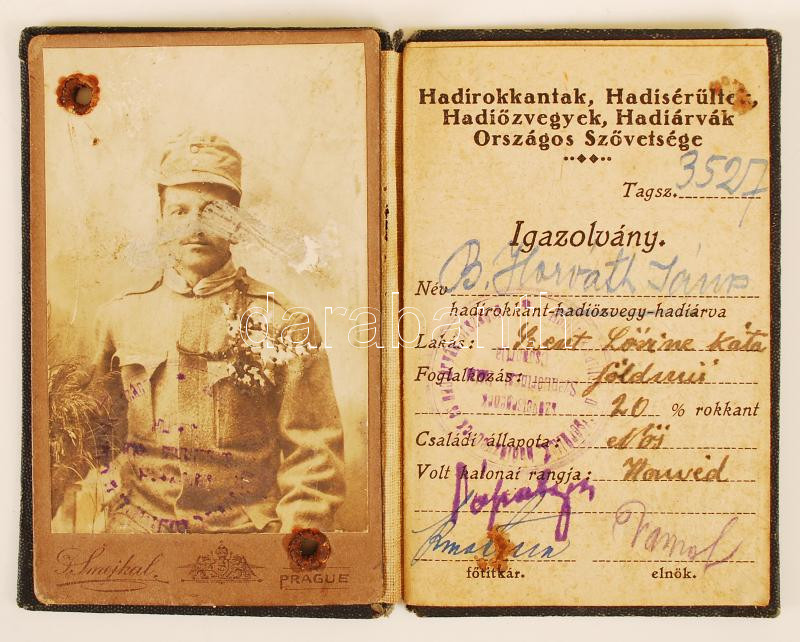 F. Smejkal.
PRAGUE
darabanth
Hadirokkantak, Hadisérültek,
Hadiözvegyek, Hadiárvák
Országos Szövetsége
Tagsz. 3527
Igazolvány.
Név B. Horváth János
hadirokkant-hadiözvegy-hadiárva
Lakás: Szent Lőrinc Káta
Foglalkozás:
20 % rokkant
Családi állapota: Nős
Volt katonai rangja: Honvéd
főtitkár. elnök.